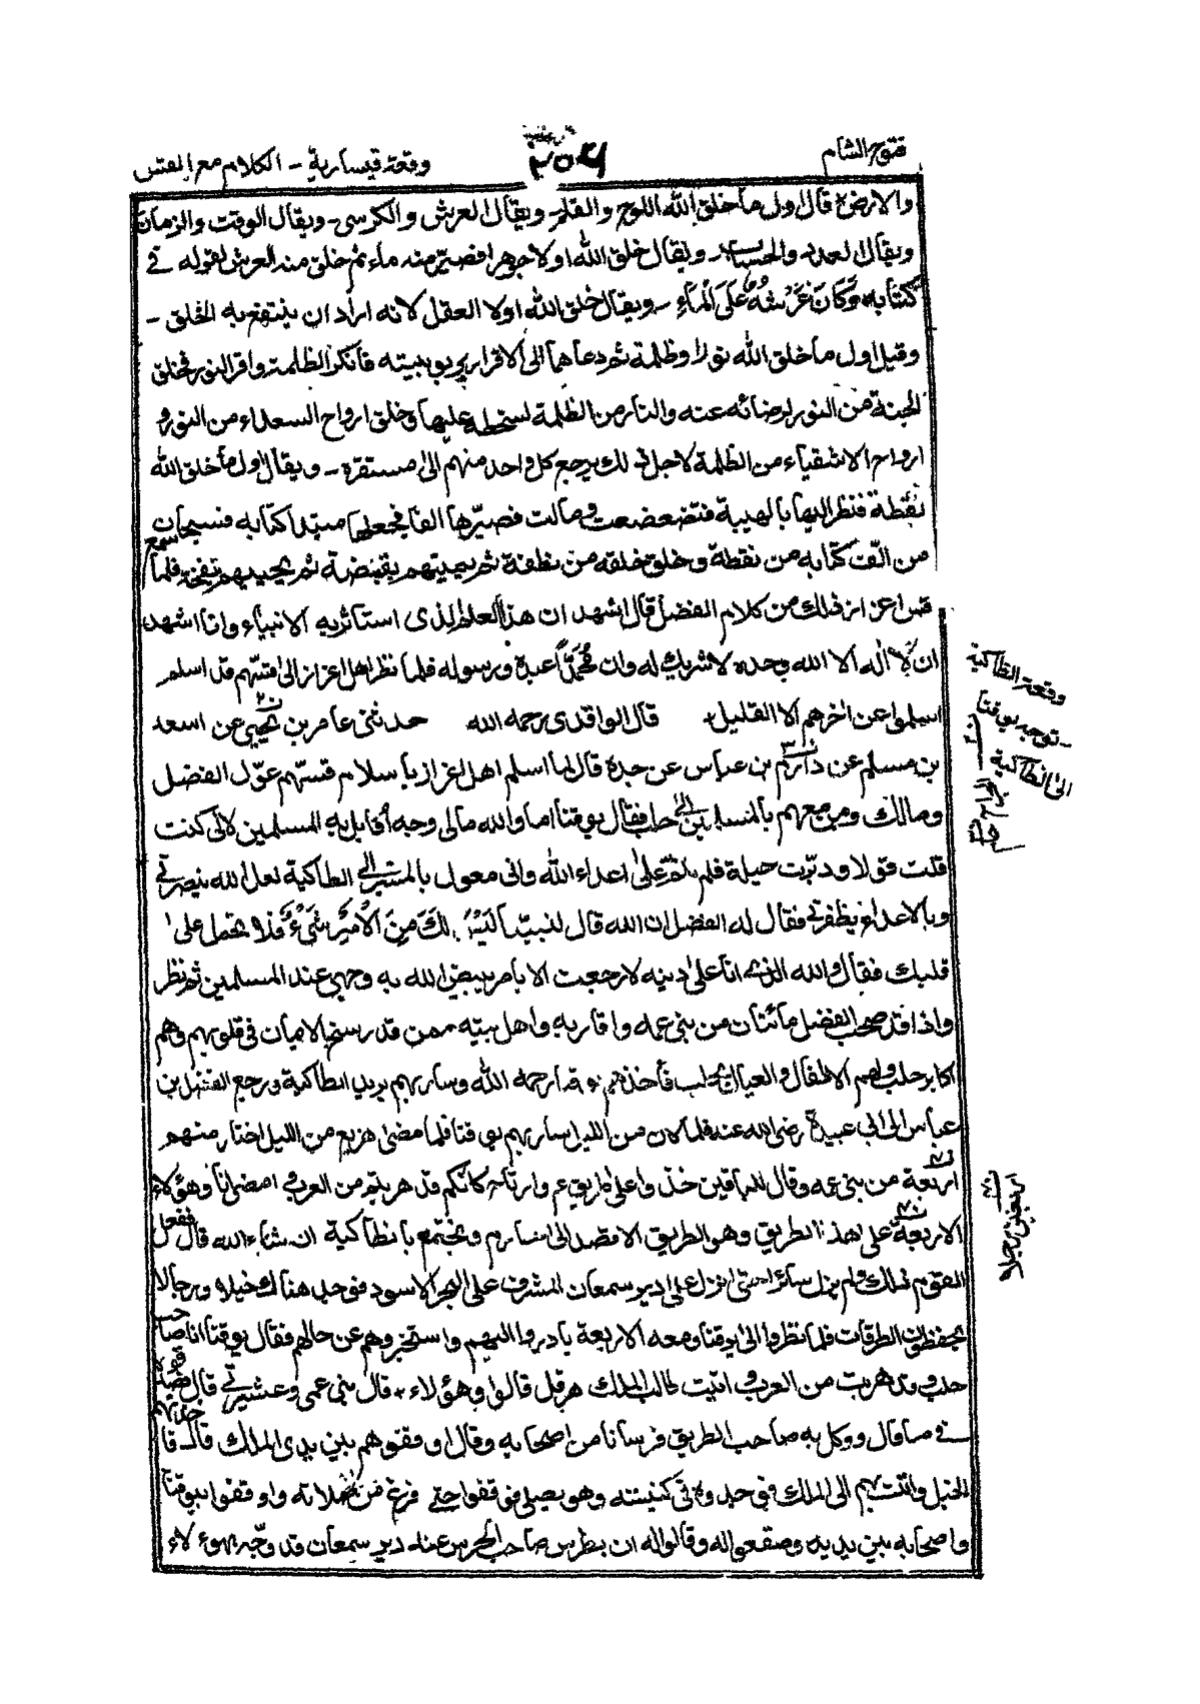 فتوح الشام
٢٥٦
وقعة قيسارية - الكلام مع القس
والارض قال اول ما خلق الله اللوح والقلم ويقال العرش والكرسى - ويقال الوقت والزمان
ويقال العدد والحساب - ويقال خلق الله اولا جوهرا فصيّر منه ماء ثم خلق منه العرش لقوله فى
كتابه وَكَانَ عَرْشُهُ عَلَى الْمَاءِ - ويقال خلق الله اولا العقل لانه اراد ان ينتفع به الخلق -
وقيل اول ما خلق الله نورا وظلمة ثم دعاهما الى الاقرار بربوبيته فانكر الظلمة واقر النور فخلق
الجنة من النور لرضائه عنه والنار من الظلمة لسخطه عليها وخلق ارواح السعداء من النور و
ارواح الاشقياء من الظلمة لاجل ذلك يرجع كل واحد منهم الى مستقره - ويقال اول ما خلق الله
نقطة فنظر اليها بالهيبة فتضعضعت ومالت فصيّرها الفا فجعلها مبتدا كتابه فسبحان
من الّف كتابه من نقطة وخلق خلقه من نطفة ثم يميتهم بقبضة ثم يحييهم بنفخة فلما سمع
قس اعزاز ذلك من كلام الفضل قال اشهد ان هذا العلم الذى استاثر به الانبياء وانا اشهد
ان لا اله الا الله وحده لا شريك له وان محمدًا عبده ورسوله فلما نظر اهل اعزاز الى قسّهم قد اسلم
اسلموا عن اخرهم الا القليل قال الواقدى رحمه الله حدثنى عامر بن يحيى عن اسعد
بن مسلم عن دارم بن عياس عن جده قال لما اسلم اهل اعزاز باسلام قسّهم عوّل الفضل
ومالك ومن معهم بالمسير الى حلب فقال يوقنا اما والله مالى وجه اقابل به المسلمين لانى كنت
قلت قولا ودبّرت حيلة فلم تتم على اعداء الله وانى معول بالمسير الى انطاكية لعل الله ينصرنى
وبالاعداء يظفرنى فقال له الفضل ان الله قال لنبيّه لَيْسَ لَكَ مِنَ الْاَمْرِ شَىْءٌ فلا تحمل على
قلبك فقال والله الذى انا على دينه لا رجعت الا بامر يبيض الله به وجهى عند المسلمين ثم نظر
واذا قد صحب الفضل مائتان من بنى عمه واقاربه واهل بيته ممن قد رسخ الايمان فى قلوبهم وهم
اكابر حلب ولهم الاطفال والعيال بحلب فاخذهم يوقنا رحمه الله وسار بهم يريد انطاكية ورجع الفضل بن
عباس الى ابى عبيدة رضى الله عنه فلما كان من الليل سار بهم يوقنا فلما مضى هزيع من الليل اختار منهم
اربعة من بنى عمه وقال للباقين خذوا على طريق عم وارتاح كانكم قد هربتم من العرب امضى انا وهؤلاء
الاربعة على هذا الطريق وهو الطريق الاقصد الى حارم ونجتمع بانطاكية ان شاء الله قال ففعل
القوم ذلك ولم يزل سائرا حتى نزل على دير سمعان المشرف على البحر الاسود فوجد هناك خيلا ورجالا
يحفظون الطرقات فلما نظروا الى يوقنا ومعه الاربعة بادروا اليهم واستخبروهم عن حالهم فقال يوقنا انا صاحب
حلب وقد هربت من العرب واتيت طالب الملك هرقل قالوا وهؤلاء قال بنى عمى وعشيرتى قال
فى ما قال ووكل به صاحب الطريق فرسانا من اصحابه وقال اوقفوهم بين يدى الملك قال
الخيل واتت بهم الى الملك فوجدوه فى كنيسته وهو يصلى فوقفوا حتى فرغ من صلاته واوقفوا يوقنا
واصحابه بين يديه وصقعوا له وقالوا له ان بطرس صاحب الحرس عند دير سمعان قد وجّه بهؤلاء
وقعة انطاكية
توجه يوقنا
الى انطاكية